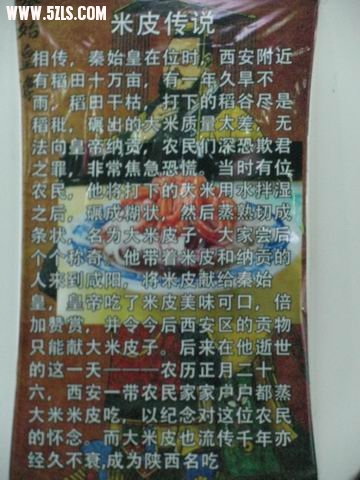 www.5ZLS.com
米皮传说
相传，秦始皇在位时，西安附近
有稻田十万亩，有一年久旱不
雨，稻田干枯，打下的稻谷尽是
稻秕，碾出的大米质量太差，无
法向皇帝纳贡，农民们深恐欺君
之罪，非常焦急恐慌。当时有位
农民，他将打下的大米用水拌湿
之后，碾成糊状，然后蒸熟切成
条状，名为大米皮子，大家尝后
个个称奇。他带着米皮和纳贡的
人来到咸阳，将米皮献给秦始
皇，皇帝吃了米皮美味可口，倍
加赞赏，并令今后西安区的贡物
只能献大米皮子。后来在他逝世
的这一天———农历正月二十
六，西安一带农民家家户户都蒸
大米米皮吃，以纪念对这位农民
的怀念。而大米皮也流传千年亦
经久不衰,成为陕西名吃